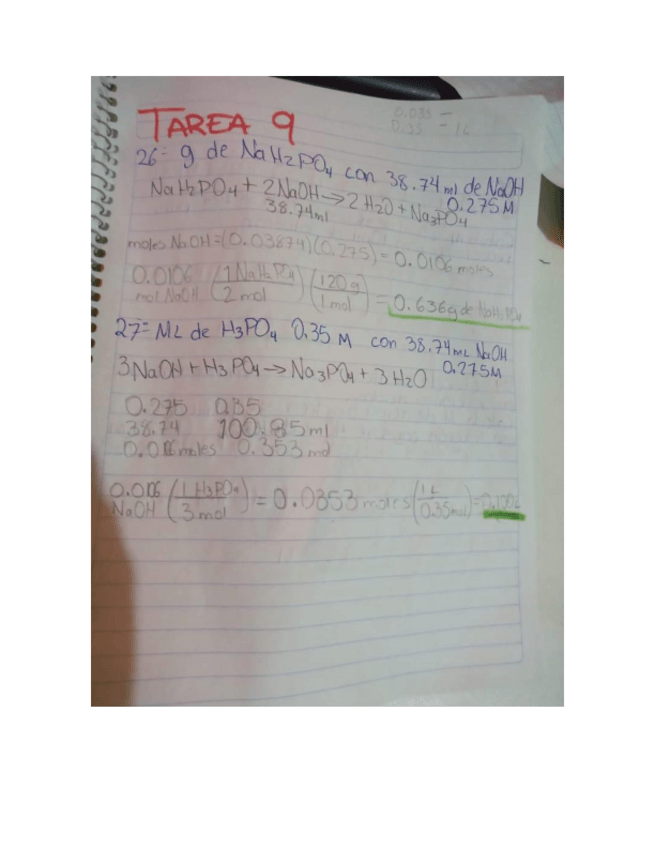 0.035 =
0.35 = 1L
TAREA 9
26= g de NaH2PO4 con 38.74 ml de NaOH
0.275 M
NaH2PO4 + 2NaOH → 2H2O + Na3PO4
38.74 ml
moles NaOH = (0.03874)(0.275) = 0.0106 moles
0.0106 mol NaOH (1 NaH2PO4 / 2 mol) (120 g / 1 mol) = 0.636g de NaH2PO4
27= ML de H3PO4 0.35 M con 38.74 mL NaOH
0.275M
3NaOH + H3PO4 → Na3PO4 + 3H2O
0.275 0.35
38.74 100.85 ml
0.0106 moles 0.353 mol
0.0106 NaOH (1 H3PO4 / 3 mol) = 0.0353 moles (1L / 0.35 mol) =